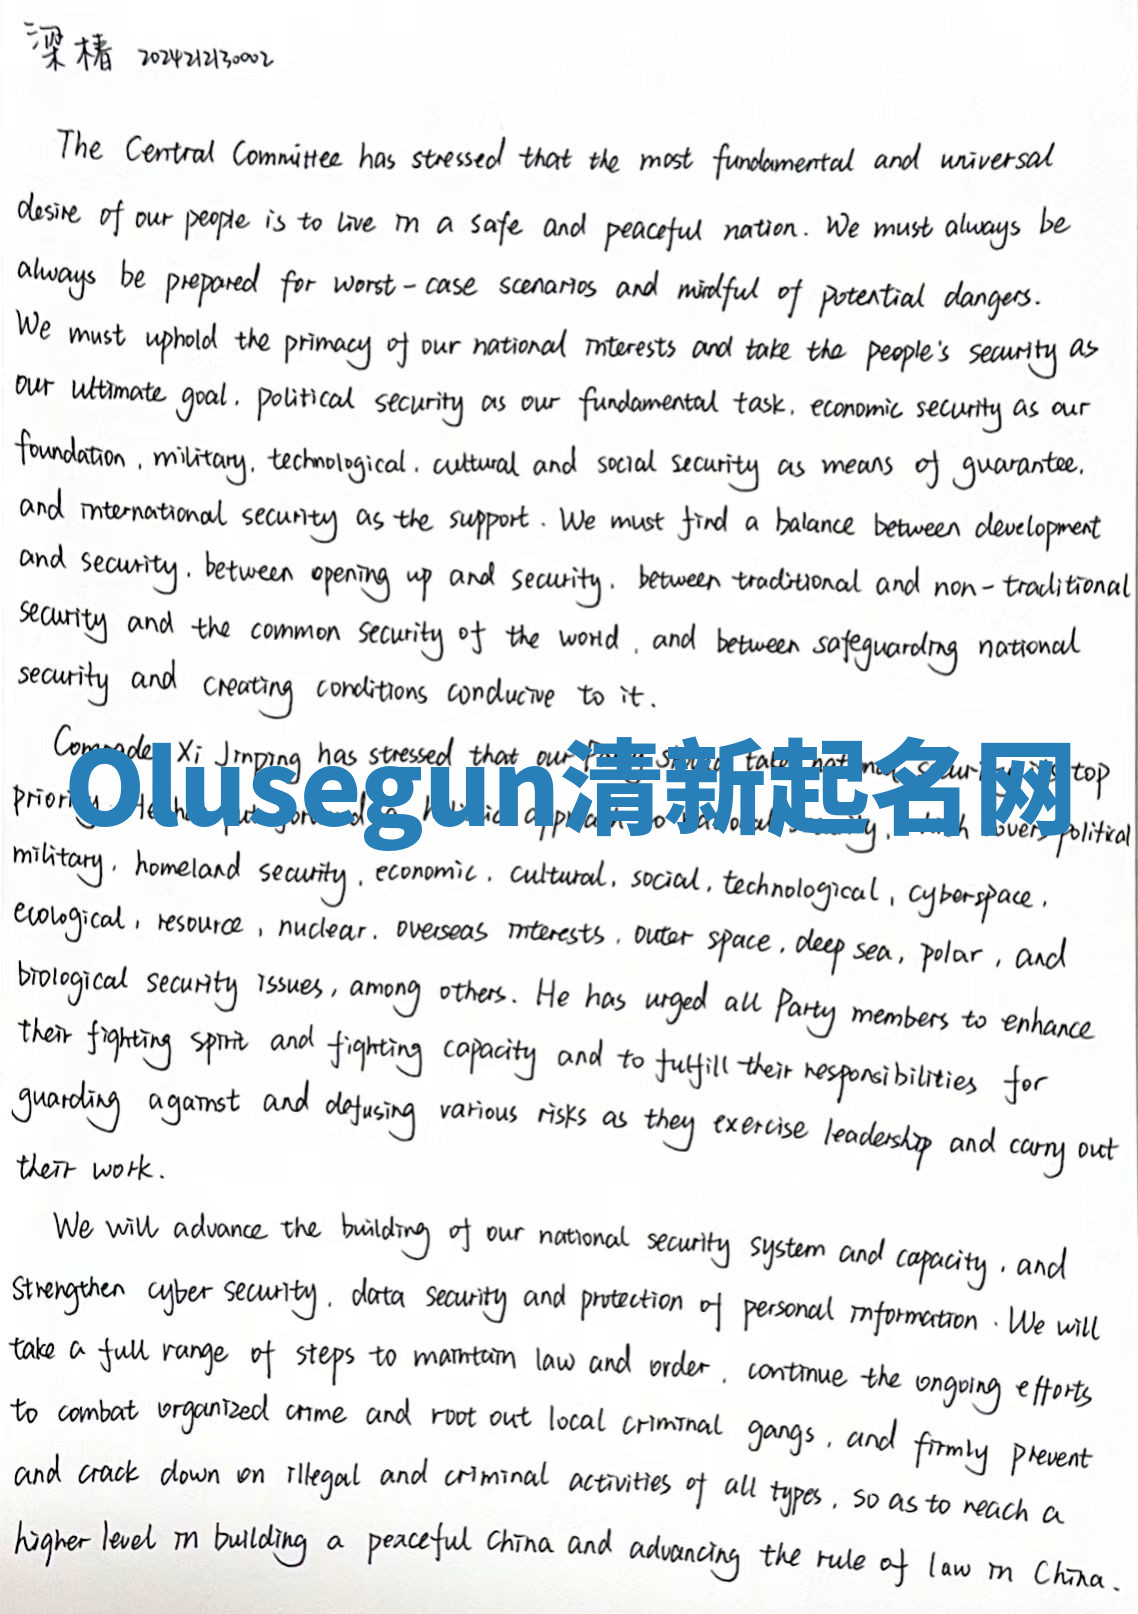 梁椿 2024212130002
The Central Committee has stressed that the most fundamental and universal
desire of our people is to live in a safe and peaceful nation. We must always be
always be prepared for worst-case scenarios and mindful of potential dangers.
We must uphold the primacy of our national interests and take the people's security as
our ultimate goal, political security as our fundamental task, economic security as our
foundation, military, technological, cultural and social security as means of guarantee,
and international security as the support. We must find a balance between development
and security, between opening up and security, between traditional and non-traditional
security and the common security of the world, and between safeguarding national
security and creating conditions conducive to it.
Comrade Xi Jinping has stressed that our take top
Olusegun清新起名网
priority. political
military, homeland security, economic, cultural, social, technological, cyberspace,
ecological, resource, nuclear, overseas interests, outer space, deep sea, polar, and
biological security issues, among others. He has urged all Party members to enhance
their fighting spirit and fighting capacity and to fulfill their responsibilities for
guarding against and defusing various risks as they exercise leadership and carry out
their work.
We will advance the building of our national security system and capacity, and
strengthen cyber security, data security and protection of personal information. We will
take a full range of steps to maintain law and order, continue the ongoing efforts
to combat organized crime and root out local criminal gangs, and firmly prevent
and crack down on illegal and criminal activities of all types, so as to reach a
higher level in building a peaceful China and advancing the rule of law in China.